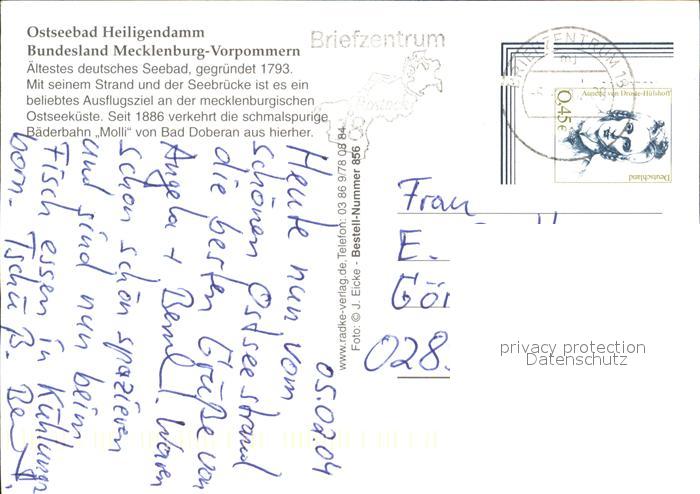 Ostseebad Heiligendamm
Bundesland Mecklenburg-Vorpommern
Ältestes deutsches Seebad, gegründet 1793.
Mit seinem Strand und der Seebrücke ist es ein
beliebtes Ausflugsziel an der mecklenburgischen
Ostseeküste. Seit 1886 verkehrt die schmalspurige
Bäderbahn „Molli" von Bad Doberan aus hierher.
Briefzentrum
BRIEFZENTRUM 18
Annette von Droste-Hülshoff
0,45€
Deutschland
www.radke-verlag.de, Telefon: 03 86 9/78 08 84
Foto: © J. Eicke - Bestell-Nummer 856
05.02.04
Heute nun vom
schönen Ostseestrand
die besten Grüße von
Angela + Bernd. Waren
schon schön spazieren
und sind nun beim
Fisch essen in Kühlungs-
born. Tschü ß.
Frau
E.
Gör
028.
privacy protection
Datenschutz